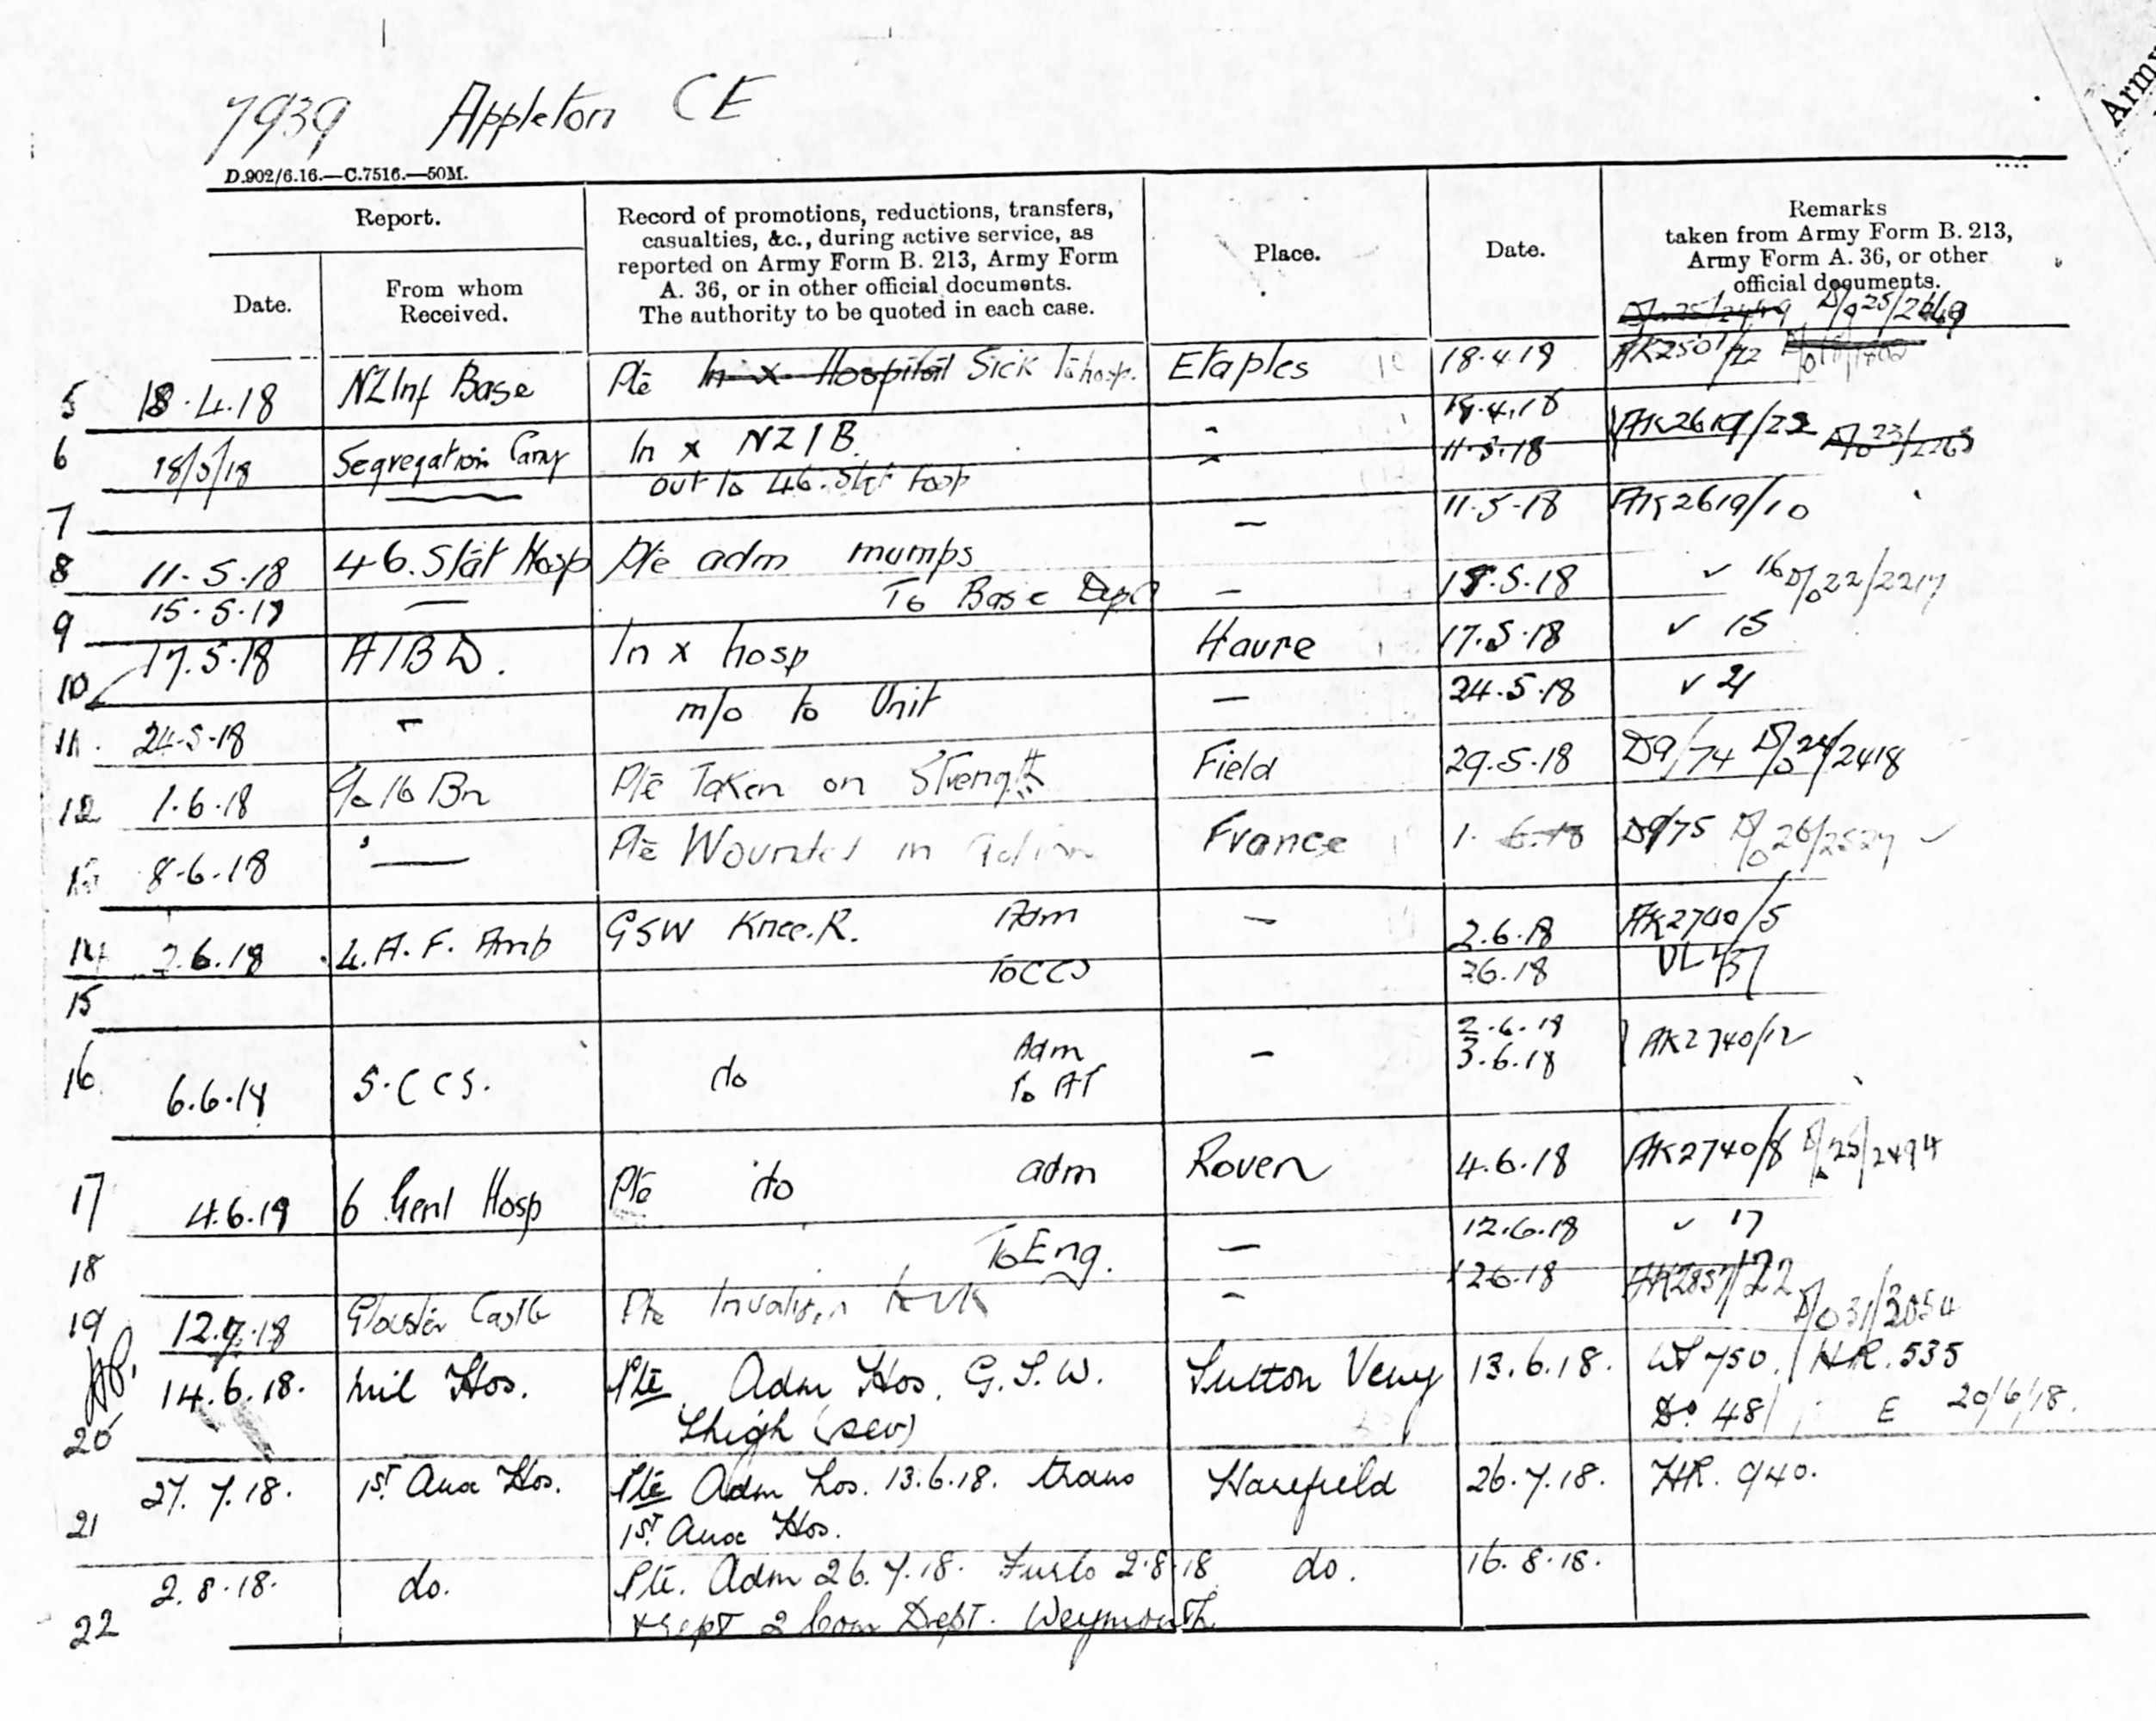 7939 Appleton CE
D.902/6.16.—C.7516.—50M.
Report.
Date.
From whom
Received.
Record of promotions, reductions, transfers,
casualties, &c., during active service, as
reported on Army Form B. 213, Army Form
A. 36, or in other official documents.
The authority to be quoted in each case.
Place.
Date.
Remarks
taken from Army Form B. 213,
Army Form A. 36, or other
official documents.
Army
5 18.4.18 NZ Inf Base Pte In x Hospital Sick To hosp. Etaples 18.4.18
6 18/5/18 Segregation Camp In x NZIB. 11.5.18 AK2619/22
out to 46. Stat Hosp
7 11.5.18 AK2619/10
8 11.5.18 46. Stat Hosp Pte adm mumps
9 15.5.18 — To Base Depot — 15.5.18 ✓ 16 D/o 22/2217
10 17.5.18 AIBD. In x hosp Havre 17.5.18 ✓ 15
11. 24.5.18 m/o to Unit — 24.5.18 ✓ 21
12 1.6.18 16 Bn Pte Taken on Strength Field 29.5.18 D9/74 2418
8.6.18 — Pte Wounded in Action France 1. 6.18 D9/75
14 2.6.18 4. A. F. Amb GSW Knee. R. Adm — 2.6.18 AK2740/5
15 To CCS 2.6.18
2.6.18
16 6.6.18 5. CCS. do Adm — 3.6.18 AK2740/12
To AT
17 4.6.18 6 Genl Hosp Pte do adm Rouen 4.6.18 AK2740/8 25/2494
18 To Eng. — 12.6.18 ✓ 17
19 12.7.18 Gloster Castle Pte Invalided to UK 12.6.18 AK2857/22
D/o 31/3054
14.6.18. Mil Hos. Pte Adm Hos. G.S.W. Sutton Veny 13.6.18. 750. HR. 535
20 Thigh (sev) Do. 48 E 20/6/18.
27.7.18. 1st Aux Hos. Pte Adm hos. 13.6.18. trans Harefield 26.7.18. HR. 940.
21 1st Aux Hos.
2.8.18. do. Pte. Adm 26.7.18. Furlo 2.8.18 do. 16.8.18.
22 & rept 2 Com Dept. Weymouth